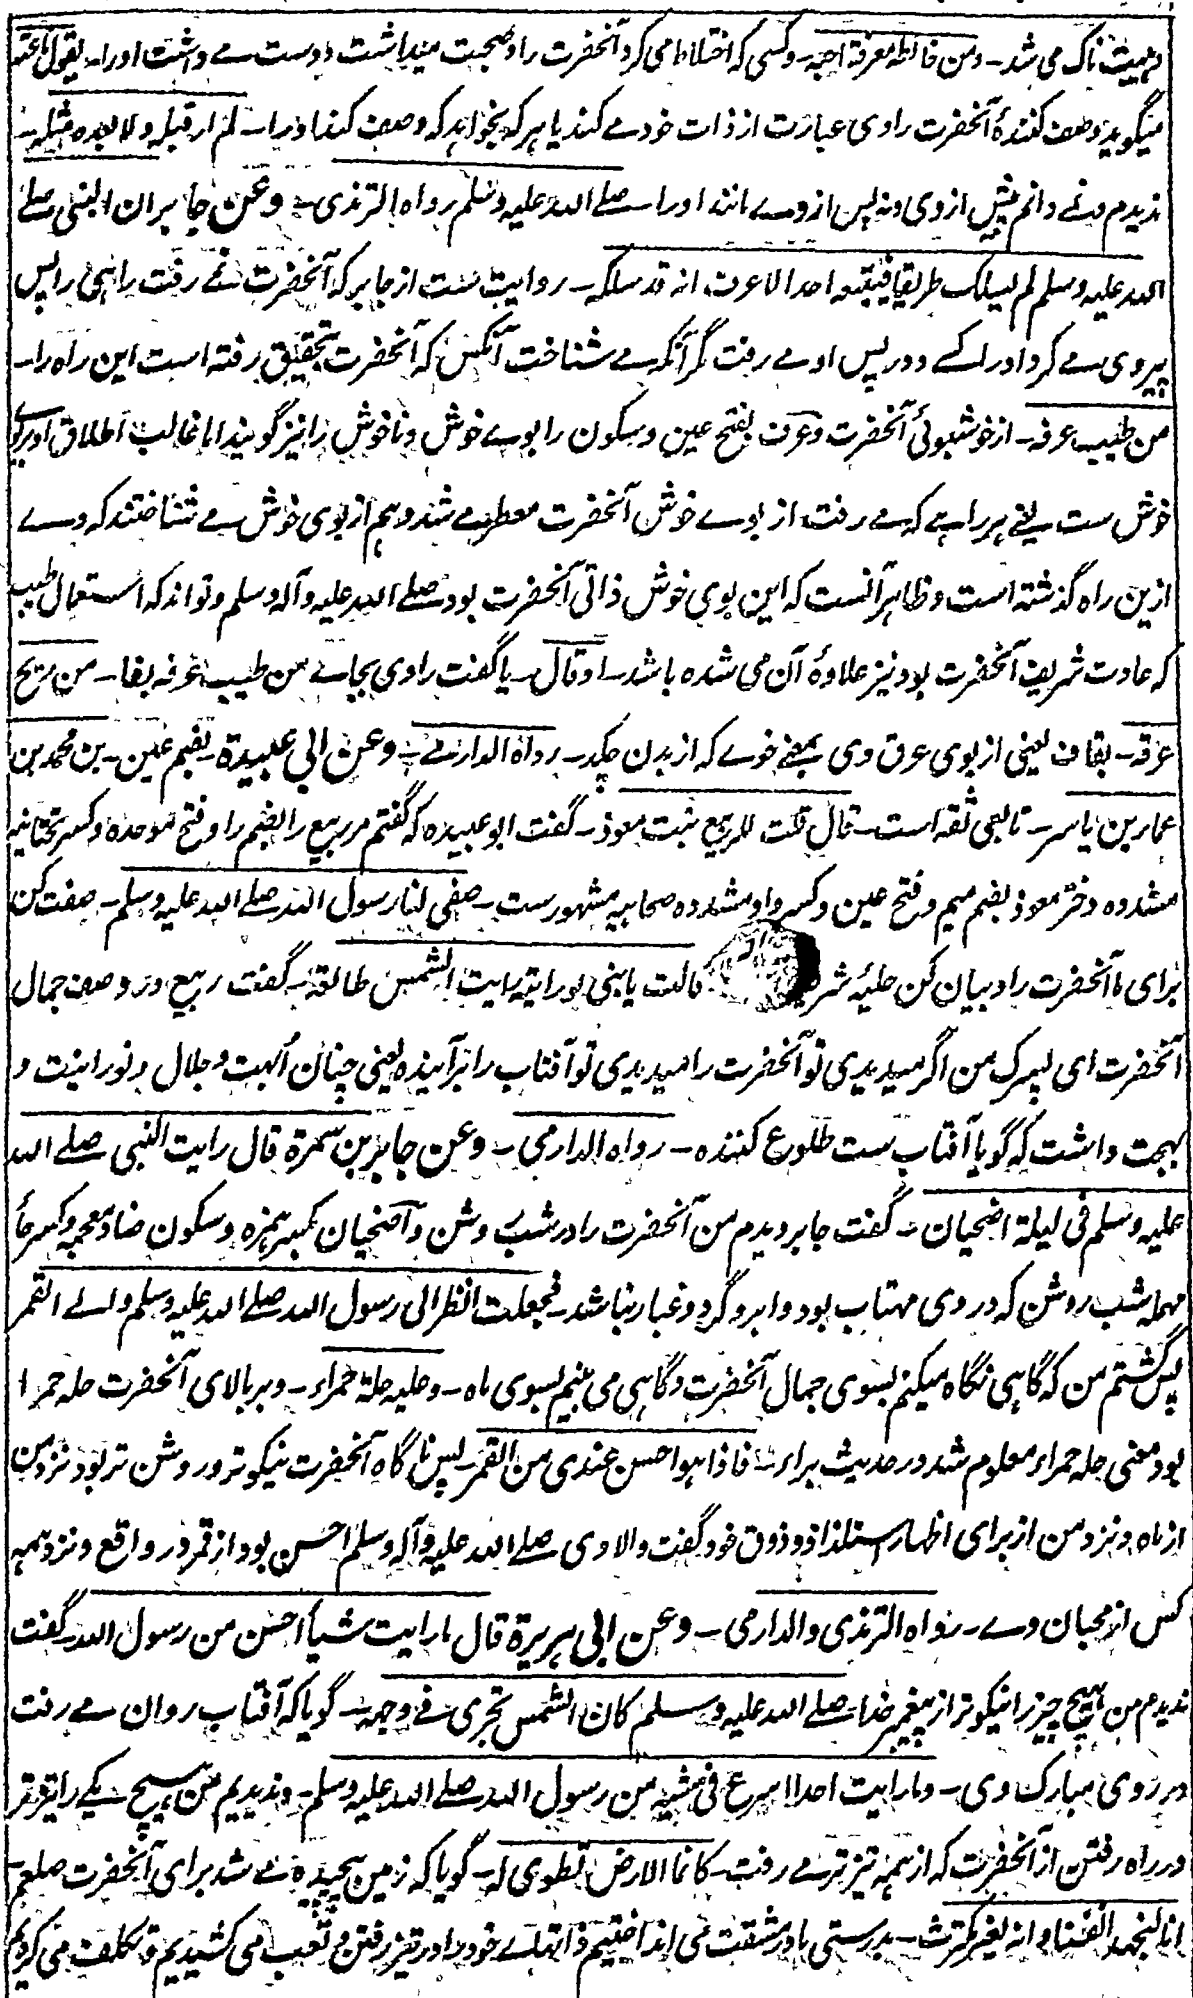 و هیبت ناک می شد۔ ومن خالطه معرفة احبه۔ وکسی که اختلاط می کرد آنحضرت را و صحبت میداشت دوست مے داشت اورا۔ یقول ناعته
میگوید وصف کنندهٔ آنحضرت راوی عبارت از ذات خود مے کند یا هر که بخواهد که وصف کند اورا۔ لم ار قبله ولا بعده مثله۔
ندیدم ونمے دانم پیش ازوی ونه پس ازوے مانند اورا۔ صلے الله علیه وسلم رواه الترمذی۔ وعن جابر ان النبی صلے
الله علیه وسلم لم یسلک طریقا فیتبعه احد الا عرف انه قد سلکه۔ روایت ست از جابر که آنحضرت نمے رفت راهی را پس
پیروی مے کرد اورا کسے و در پس او مے رفت مگر آنکه مے شناخت آنکس که آنحضرت بتحقیق رفته است این راه را۔
من طیب عرفه۔ از خوشبوئی آنحضرت وعرف بفتح عین وسکون را بوے خوش و ناخوش را نیز گویند اما غالب اطلاق او بربوے
خوش ست یعنے هر راهے که مے رفت از بوے خوش آنحضرت معطر مے شد و هم از بوی خوش مے شناختند که وے
ازین راه گذشته است وظاهر آنست که این بوی خوش ذاتی آنحضرت بود صلے الله علیه وآله وسلم وتواند که استعمال طیب
که عادت شریف آنحضرت بود نیز علاوهٔ آن می شده باشد۔ او قال۔ یا گفت راوی بجاے من طیب عرفه بفا۔ من ریح
عرقه۔ بقاف یعنی از بوی عرق وی بمعنے خوے که از بدن چکد۔ رواه الدارمے۔ وعن ابی عبیدة۔ بضم عین۔ بن محمد بن
عمار بن یاسر۔ تابعی ثقه است۔ قال قلت للربیع بنت معوذ۔ گفت ابو عبیده که گفتم مر ربیع را بضم را وفتح موحده وکسر تحتانیه
مشدده دختر معوذ بضم میم وفتح عین وکسر واو مشدده صحابیه مشهورست۔ صفی لنا رسول الله صلے الله علیه وسلم۔ صفت کن
برای ما آنحضرت را و بیان کن حلیه قالت یا بنی لو رایته رایت الشمس طالعة۔ گفت ربیع در وصف جمال
آنحضرت ای پسرک من اگر میدیدی تو آنحضرت را میدیدی تو آفتاب را برآینده یعنی چنان اُبهت وجلال ونورانیت و
بهجت داشت که گویا آفتاب ست طلوع کننده۔ رواه الدارمی۔ وعن جابر بن سمرة قال رایت النبی صلے الله
علیه وسلم فی لیلة اضحیان۔ گفت جابر دیدم من آنحضرت را در شب روشن و اضحیان بکسر همزه وسکون ضاد معجمه وکسر حاٴ
مهمله شب روشن که در وی مهتاب بود و ابر و گرد و غبار نباشد۔ فجعلت انظر الی رسول الله صلے الله علیه وسلم والے القمر
پس گشتم من که گاهی نگاه میکنم بسوی جمال آنحضرت و گاهی می بینم بسوی ماه۔ وعلیه حلة حمراء۔ وبر بالای آنحضرت حله حمرا
بود معنی حله حمراء معلوم شد در حدیث براء۔ فاذا هو احسن عندی من القمر۔ پس ناگاه آنحضرت نیکوتر و روشن تر بود نزد من
از ماه ونزد من از برای اظهار استلذاذ وذوق خود گفت والا وی صلے الله علیه وآله وسلم احسن بود از قمر در واقع ونزد همه
کس از محبان وے۔ رواه الترمذی والدارمی۔ وعن ابی هریرة قال ما رایت شیأ احسن من رسول الله۔ گفت
ندیدم من هیچ چیز را نیکوتر از پیغمبر خدا۔ صلے الله علیه وسلم کان الشمس تجری فے وجهه۔ گویا که آفتاب روان مے رفت
در روی مبارک وی۔ وما رایت احدا اسرع فی مشیه من رسول الله صلے الله علیه وسلم۔ وندیدیم من هیچ یکے را تیزتر
در راه رفتن از آنحضرت که از همه تیزتر مے رفت۔ کانما الارض تطوی له۔ گویا که زمین پیچیده مے شد برای آنحضرت صلعم
انا لنجهد انفسنا وانه لغیر مکترث۔ بدرستی ما در مشقت می انداختیم ذاتهاے خود را در تیز رفتن و تعب می کشیدیم و تکلف می کردیم